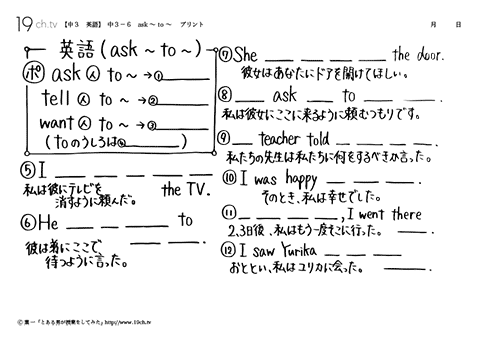 19ch.tv 【中3 英語】 中3-6 ask ~ to ~ プリント 月 日
英語 (ask ~ to ~)
ポ ask 人 to ~ → ①
tell 人 to ~ → ②
want 人 to ~ → ③
(toのうしろは④ )
⑤ I
私は彼にテレビを the TV.
消すように頼んだ。
⑥ He to
彼は君にここで .
待つように言った。
⑦ She the door.
彼女はあなたにドアを開けてほしい。
⑧ ask to .
私は彼女にここに来るように頼むつもりです。
⑨ teacher told .
私たちの先生は私たちに何をするべきか言った。
⑩ I was happy .
そのとき、私は幸せでした。
⑪ , I went there
2,3日後、私はもう一度そこに行った。 .
⑫ I saw Yurika
おととい、私はユリカに会った。 .
© 葉一「とある男が授業をしてみた」http://www.19ch.tv